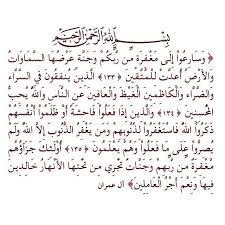 بِسْمِ اللَّهِ الرَّحْمَنِ الرَّحِيمِ
﴿ وَسَارِعُوا إِلَى مَغْفِرَةٍ مِنْ رَبِّكُمْ وَجَنَّةٍ عَرْضُهَا السَّمَاوَاتُ
وَالْأَرْضُ أُعِدَّتْ لِلْمُتَّقِينَ (١٣٣) الَّذِينَ يُنْفِقُونَ فِي السَّرَّاءِ
وَالضَّرَّاءِ وَالْكَاظِمِينَ الْغَيْظَ وَالْعَافِينَ عَنِ النَّاسِ وَاللَّهُ يُحِبُّ
الْمُحْسِنِينَ (١٣٤) وَالَّذِينَ إِذَا فَعَلُوا فَاحِشَةً أَوْ ظَلَمُوا أَنْفُسَهُمْ
ذَكَرُوا اللَّهَ فَاسْتَغْفَرُوا لِذُنُوبِهِمْ وَمَنْ يَغْفِرُ الذُّنُوبَ إِلَّا اللَّهُ وَلَمْ
يُصِرُّوا عَلَى مَا فَعَلُوا وَهُمْ يَعْلَمُونَ (١٣٥) أُولَئِكَ جَزَاؤُهُمْ
مَغْفِرَةٌ مِنْ رَبِّهِمْ وَجَنَّاتٌ تَجْرِي مِنْ تَحْتِهَا الْأَنْهَارُ خَالِدِينَ
فِيهَا وَنِعْمَ أَجْرُ الْعَامِلِينَ ﴾ ال عمران